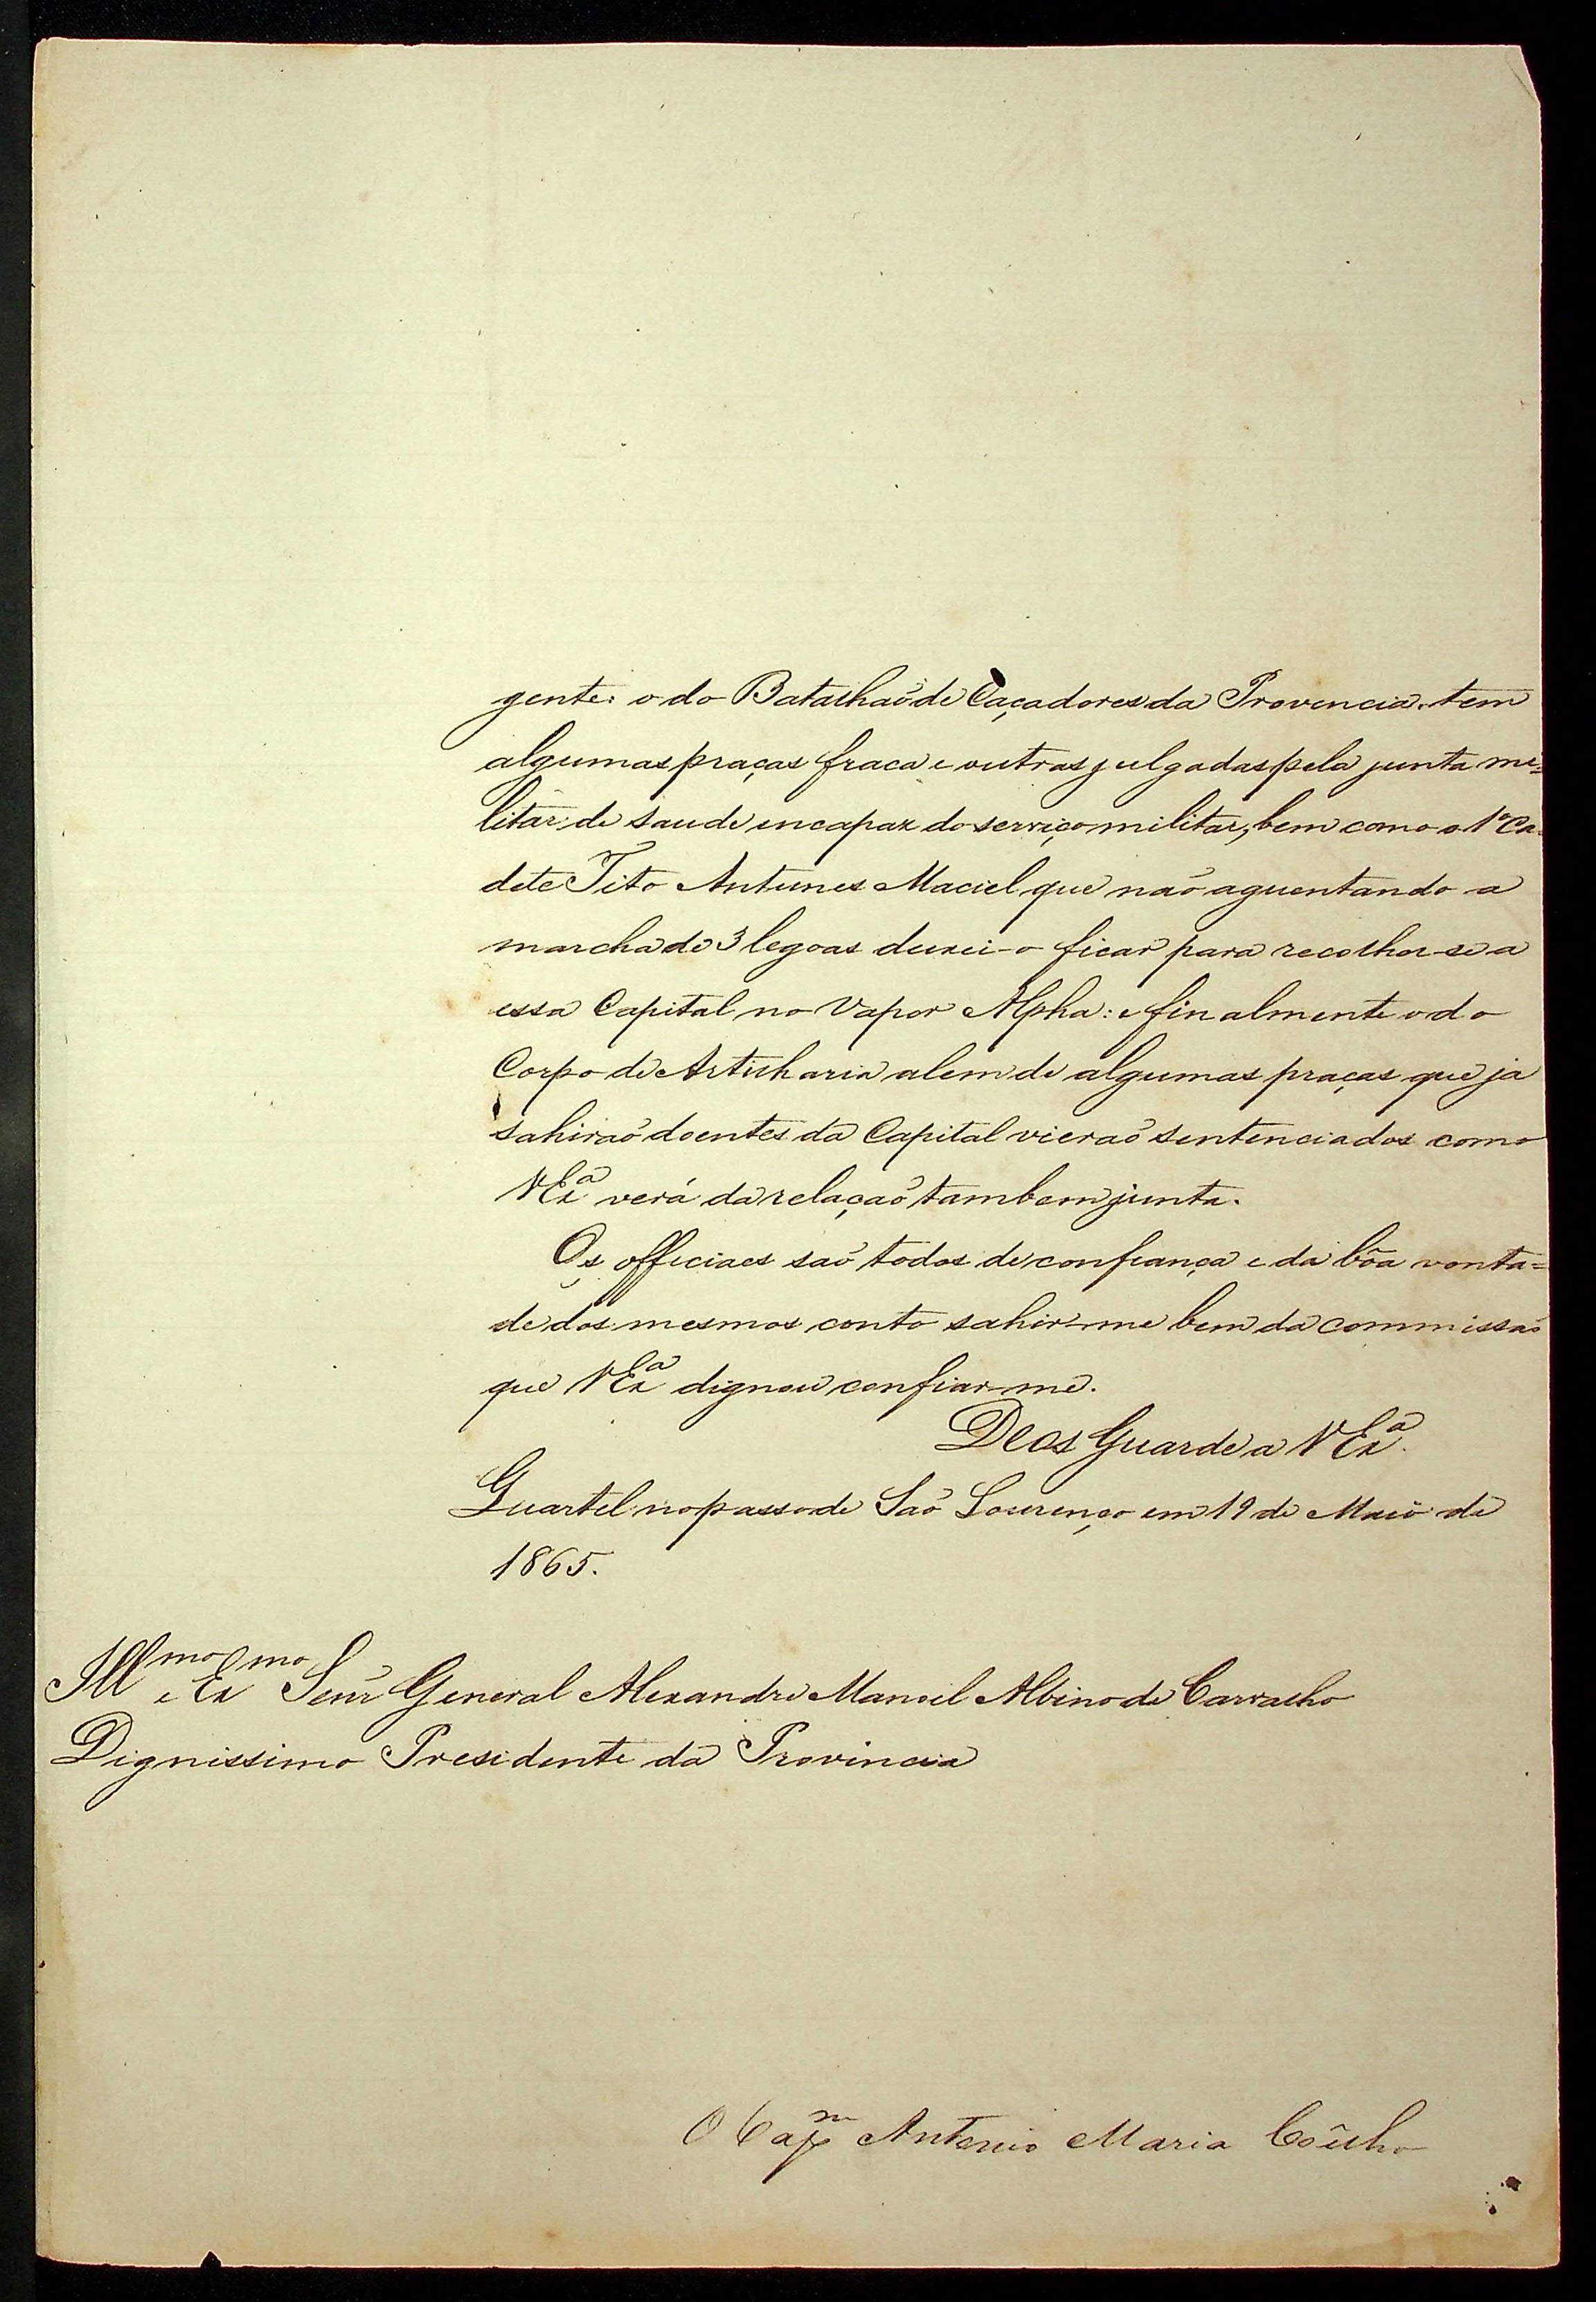 gente: o do Batalhaõ de Caçadores da Provencia tem
algumas praças fraca e outras julgadas pela junta mi=
litar de saude encapaz do serviço militar, bem como o 1º Ca=
dete Tito Antunes Maciel que naõ aguentando a
marcha de 3 legoas deixei-o ficar para recolher-se a
essa Capital no Vapor Alpha: e finalmente o do
Corpo de Artilharia alem de algumas praças que ja
sahiraõ doentes da Capital vieraõ sentenciados como
VExª verá da relaçaõ tambem junta.
Os officiaes saõ todos de confiança e da bõa vonta=
de dos mesmos conto sahir-me bem da commissaõ
que VExª dignou confiar-me.
Deos Guarde a VExª.
Quartel no passo de Saõ Lourenço em 19 de Maio de
1865.
Illmo e Exmo Senr General Alexandre Manoel Albino de Carvalho
Dignissimo Presidente da Provincia
O Capm Antonio Maria Coêlho